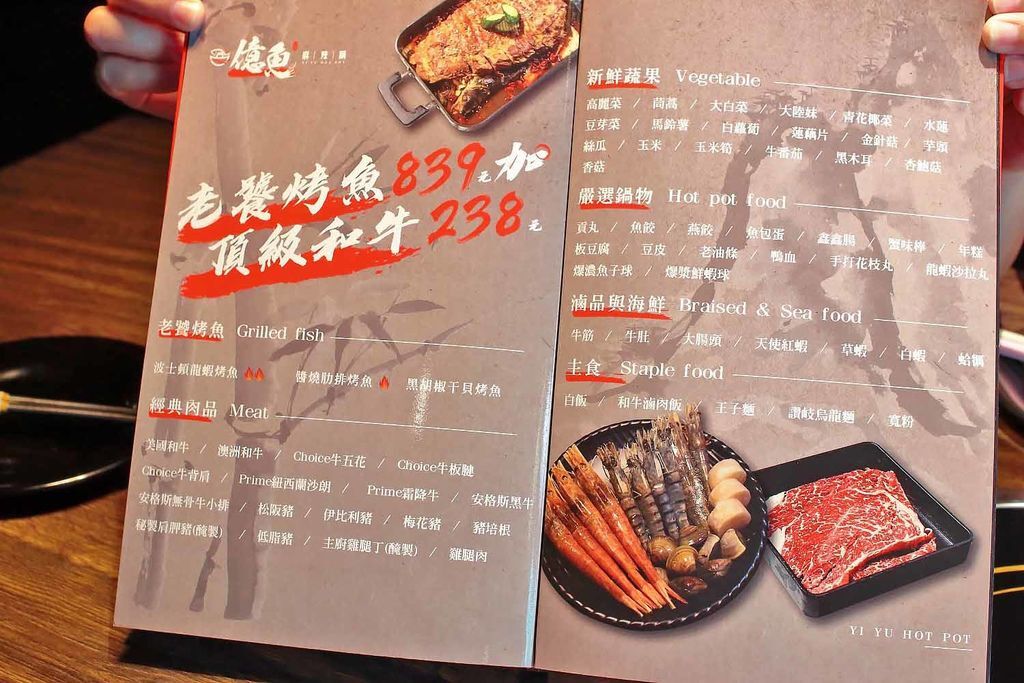 億魚 麻|辣|鍋
老饕烤魚839元加
頂級和牛238元
老饕烤魚 Grilled fish
波士頓龍蝦烤魚 醬燒肋排烤魚 黑胡椒干貝烤魚
經典肉品 Meat
美國和牛 / 澳洲和牛 / Choice牛五花 / Choice牛板腱
Choice牛背肩 / Prime紐西蘭沙朗 / Prime霜降牛 / 安格斯黑牛
安格斯無骨牛小排 / 松阪豬 / 伊比利豬 / 梅花豬 / 豬培根
秘製肩胛豬(醃製) / 低脂豬 / 主廚雞腿丁(醃製) / 雞腿肉
新鮮蔬果 Vegetable
高麗菜 / 茼蒿 / 大白菜 / 大陸妹 / 青花椰菜 / 水蓮
豆芽菜 / 馬鈴薯 / 白蘿蔔 / 蓮藕片 / 金針菇 / 芋頭
絲瓜 / 玉米 / 玉米筍 / 牛番茄 / 黑木耳 / 杏鮑菇
香菇
嚴選鍋物 Hot pot food
貢丸 / 魚餃 / 燕餃 / 魚包蛋 / 鑫鑫腸 / 蟹味棒 / 年糕
板豆腐 / 豆皮 / 老油條 / 鴨血 / 手打花枝丸 / 龍蝦沙拉丸
爆濃魚子球 / 爆漿鮮蝦球
滷品與海鮮 Braised & Sea food
牛筋 / 牛肚 / 大腸頭 / 天使紅蝦 / 草蝦 / 白蝦 / 蛤蠣
主食 Staple food
白飯 / 和牛滷肉飯 / 王子麵 / 讚岐烏龍麵 / 寬粉
YI YU HOT POT